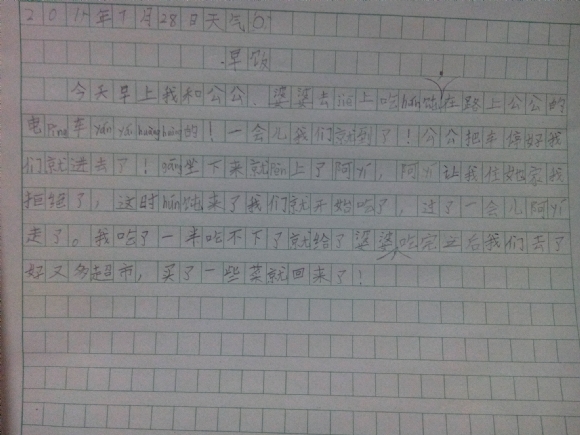 2011年7月28日天气
早饭
今天早上我和公公、婆婆去jiē上吃hún饨在路上公公的
电Píng车yáo yáo huàng huàng的！一会儿我们就到了！公公把车停好我
们就进去了！gāng坐下来就pèng上了阿Yí，阿Yí让我住她家我
拒绝了，这时hún饨来了我们就开始吃了，过了一会儿阿Yí
走了。我吃了一半吃不下了就给了婆婆吃完之后我们去了
好又多超市，买了一些菜就回来了！